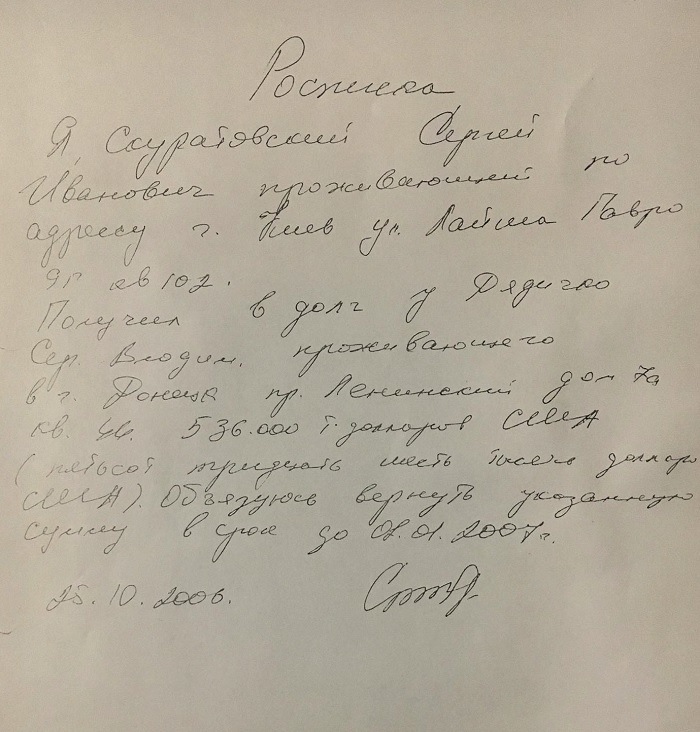 Росписка
Я, Скуратовский Сергей
Иванович проживающий по
адресу г. Киев ул. Лайша Гавро
9г кв 102.
Получил в долг у Дядичко
Сер. Владим. проживающего
в г. Донецк пр. Ленинский дом 7а
кв. 46. 536.000 т. долларов США
(пятьсот тридцать шесть тысяч доллар
США). Обязуюсь вернуть указанную
сумму в срок до 02.01.2007г.
25.10.2006.